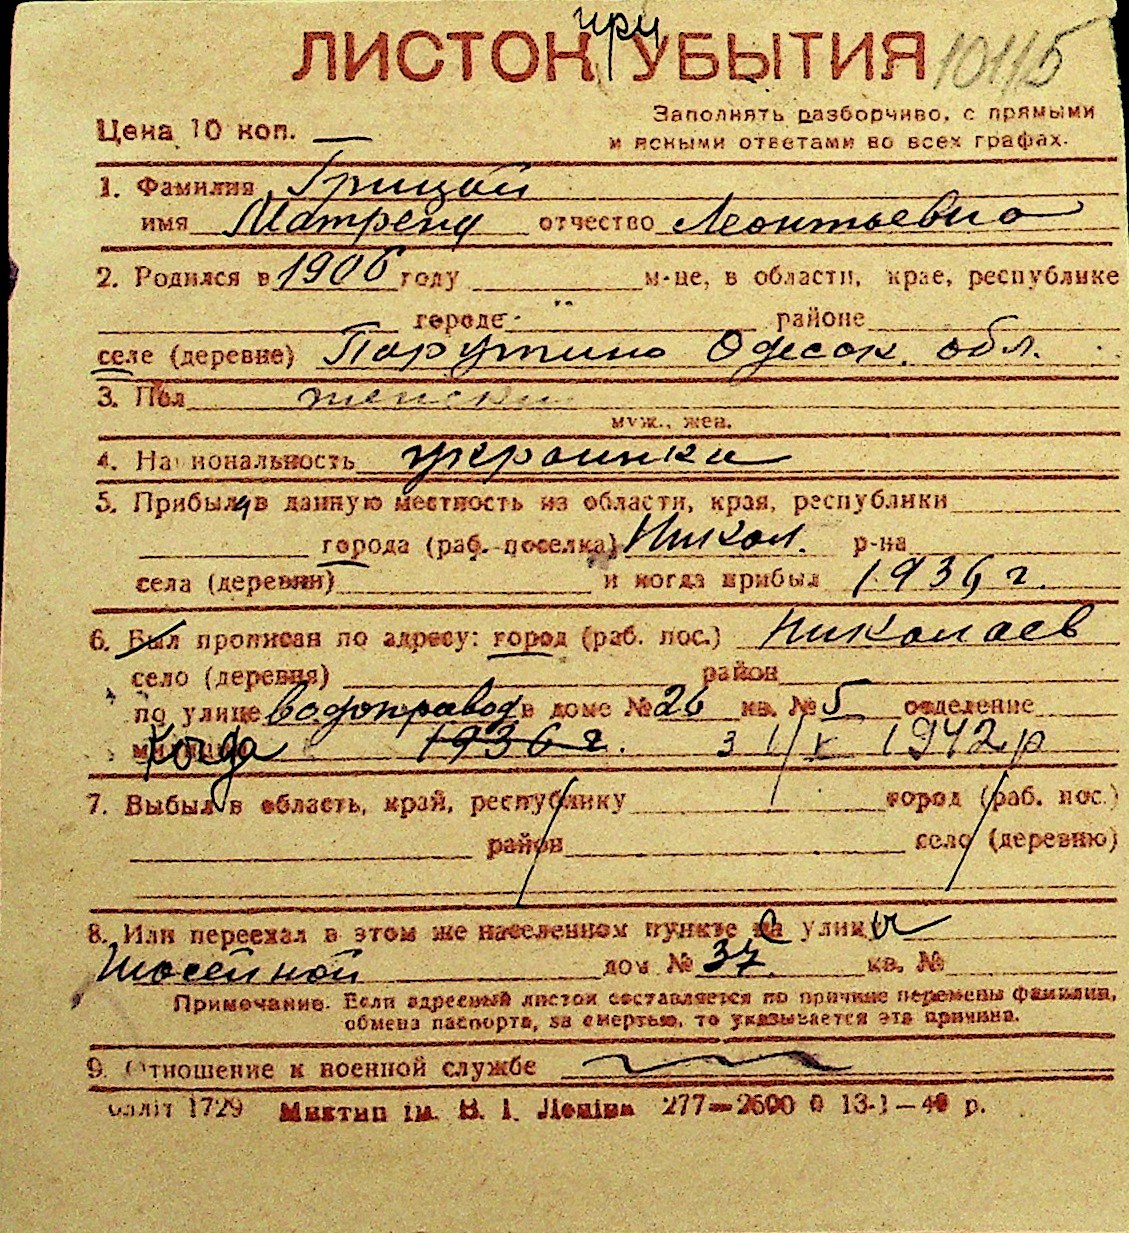 ЛИСТОК при УБЫТИЯ 10115
Цена 10 коп. Заполнять разборчиво, с прямыми
и ясными ответами во всех графах.
1. Фамилия Грицай
имя Матрена отчество Леонтьевна
2. Родился в 1906 году м-це, в области, крае, республике
городе районе
селе (деревне) Парутино Одесок. обл.
3. Пол женски
муж., жен.
4. Национальность украинка
5. Прибыла в данную местность из области, края, республики
города (раб. поселка) Никол. р-на
села (деревни) и когда прибыл 1936 г.
6. Был прописан по адресу: город (раб. пос.) Николаев
село (деревня) район
по улице водопровод в доме № 26 кв. № 5 отделение
милиции когда 1936 г. з 1/V 1942 р
7. Выбыл в область, край, республику город (раб. пос.)
район село (деревню)
8. Или переехал в этом же населенном пункте с улицы
Шосейной дом № 37 кв. №
Примечание. Если адресный листок составляется по причине перемены фамилии,
обмена паспорта, за смертью, то указывается эта причина.
9. Отношение к военной службе
1729 Миктип ім. В. І. Леніна 277—2600 0 13-1—40 р.